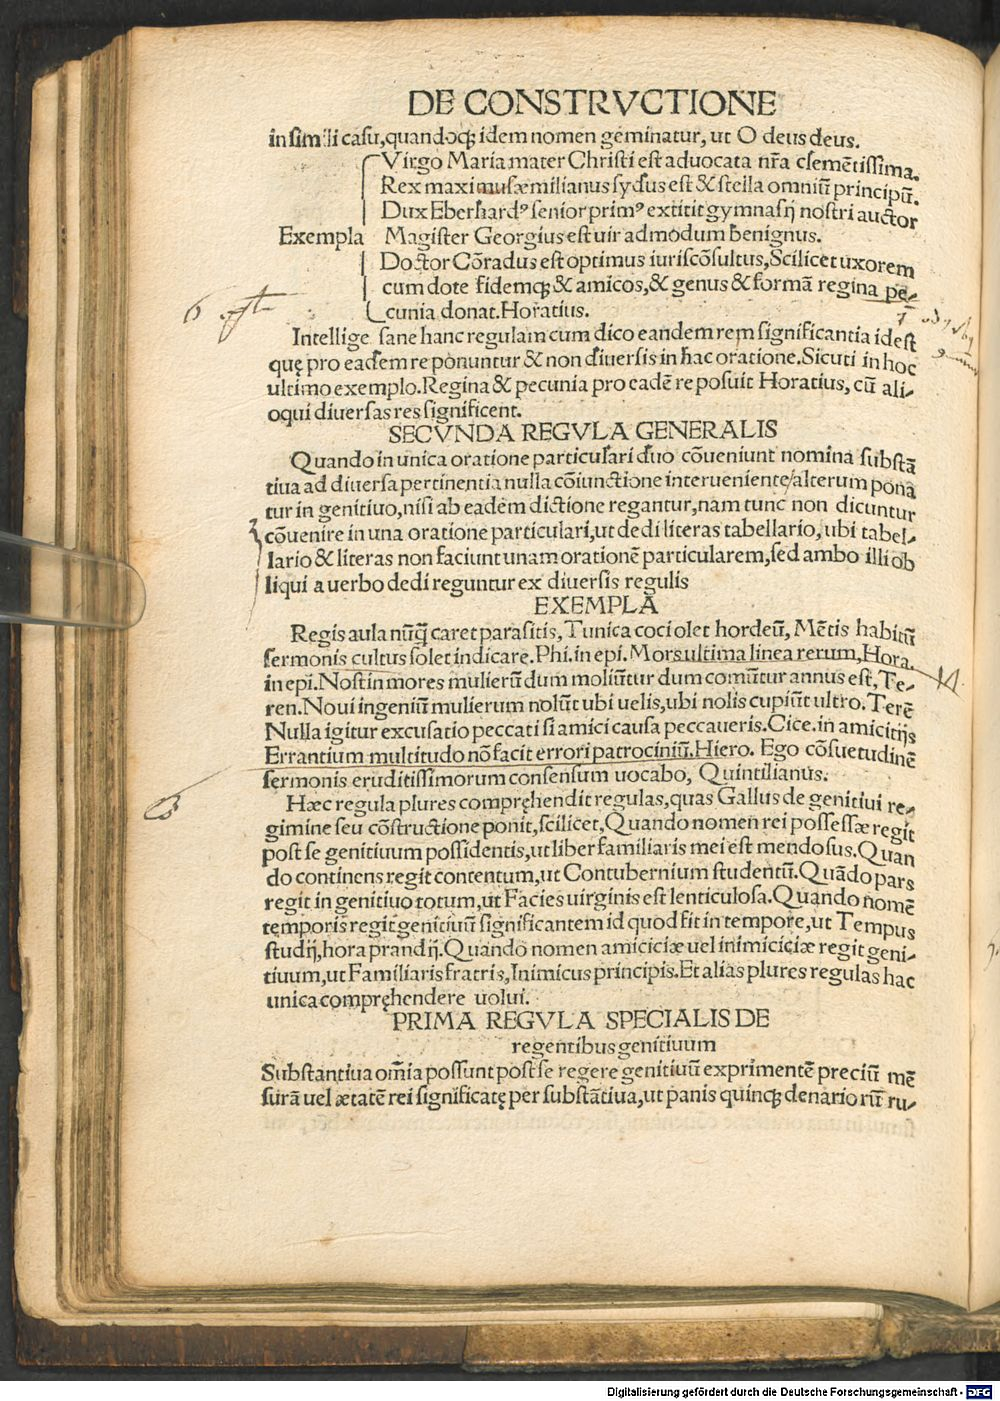 DE CONSTRVCTIONE
in simili casu, quandoq̃ idem nomen geminatur, ut O deus deus.
Virgo Maria mater Christi est aduocata nr̃a clemẽtissima.
Rex maximus æmilianus sydus est & stella omniũ principũ.
Dux Eberhardꝰ senior primꝰ extitit gymnasij nostri auctor
Exempla Magister Georgius est uir admodum benignus.
Doctor Cõradus est optimus iuriscõsultus, Scilicet uxorem
cum dote fidemq̃ & amicos, & genus & formã regina pe-
cunia donat. Horatius.
Intellige sane hanc regulam cum dico eandem rem significantia id est
quę pro eadem reponuntur & non diuersis in hac oratione. Sicuti in hoc
ultimo exemplo. Regina & pecunia pro eadẽ reposuit Horatius, cũ ali-
oqui diuersas res significent.
SECVNDA REGVLA GENERALIS
Quando in unica oratione particulari duo cõueniunt nomina substã
tiua ad diuersa pertinentia nulla cõiunctione interueniente/alterum ponã
tur in genitiuo, nisi ab eadem dictione regantur, nam tunc non dicuntur
cõuenire in una oratione particulari, ut dedi literas tabellario, ubi tabel-
lario & literas non faciunt unam orationẽ particularem, sed ambo illi ob
liqui a uerbo dedi reguntur ex diuersis regulis
EXEMPLA
Regis aula nũq̃ caret parasitis, Tunica coci olet hordeũ, Mẽtis habitũ
sermonis cultus solet indicare. Phi. in epi. Mors ultima linea rerum, Hora.
in epi. Nostin mores mulierũ dum moliũtur dum comũtur annus est, Te-
ren. Noui ingeniũ mulierum nolũt ubi uelis, ubi nolis cupiũt ultro. Terẽ
Nulla igitur excusatio peccati si amici causa peccaueris. Cice. in amicitijs
Errantium multitudo nõ facit errori patrociniũ. Hiero. Ego cõsuetudinẽ
sermonis eruditissimorum consensum uocabo, Quintilianus.
Hæc regula plures compręhendit regulas, quas Gallus de genitiui re-
gimine seu cõstructione ponit, scilicet, Quando nomen rei possessæ regit
post se genitiuum possidentis, ut liber familiaris mei est mendosus. Quan
do continens regit contentum, ut Contubernium studentũ. Quãdo pars
regit in genitiuo totum, ut Facies uirginis est lenticulosa. Quando nomẽ
temporis regit genitiuũ significantem id quod fit in tempore, ut Tempus
studij, hora prandij. Quando nomen amiciciæ uel inimiciciæ regit geni-
tiuum, ut Familiaris fratris, Inimicus principis. Et alias plures regulas hac
unica compręhendere uolui.
PRIMA REGVLA SPECIALIS DE
regentibus genitiuum
Substantiua om̃ia possunt post se regere genitiuũ exprimentẽ preciũ mẽ
surã uel ætatẽ rei significatę per substãtiua, ut panis quinq̃ denariorũ ru-
Digitalisierung gefördert durch die Deutsche Forschungsgemeinschaft - DFG